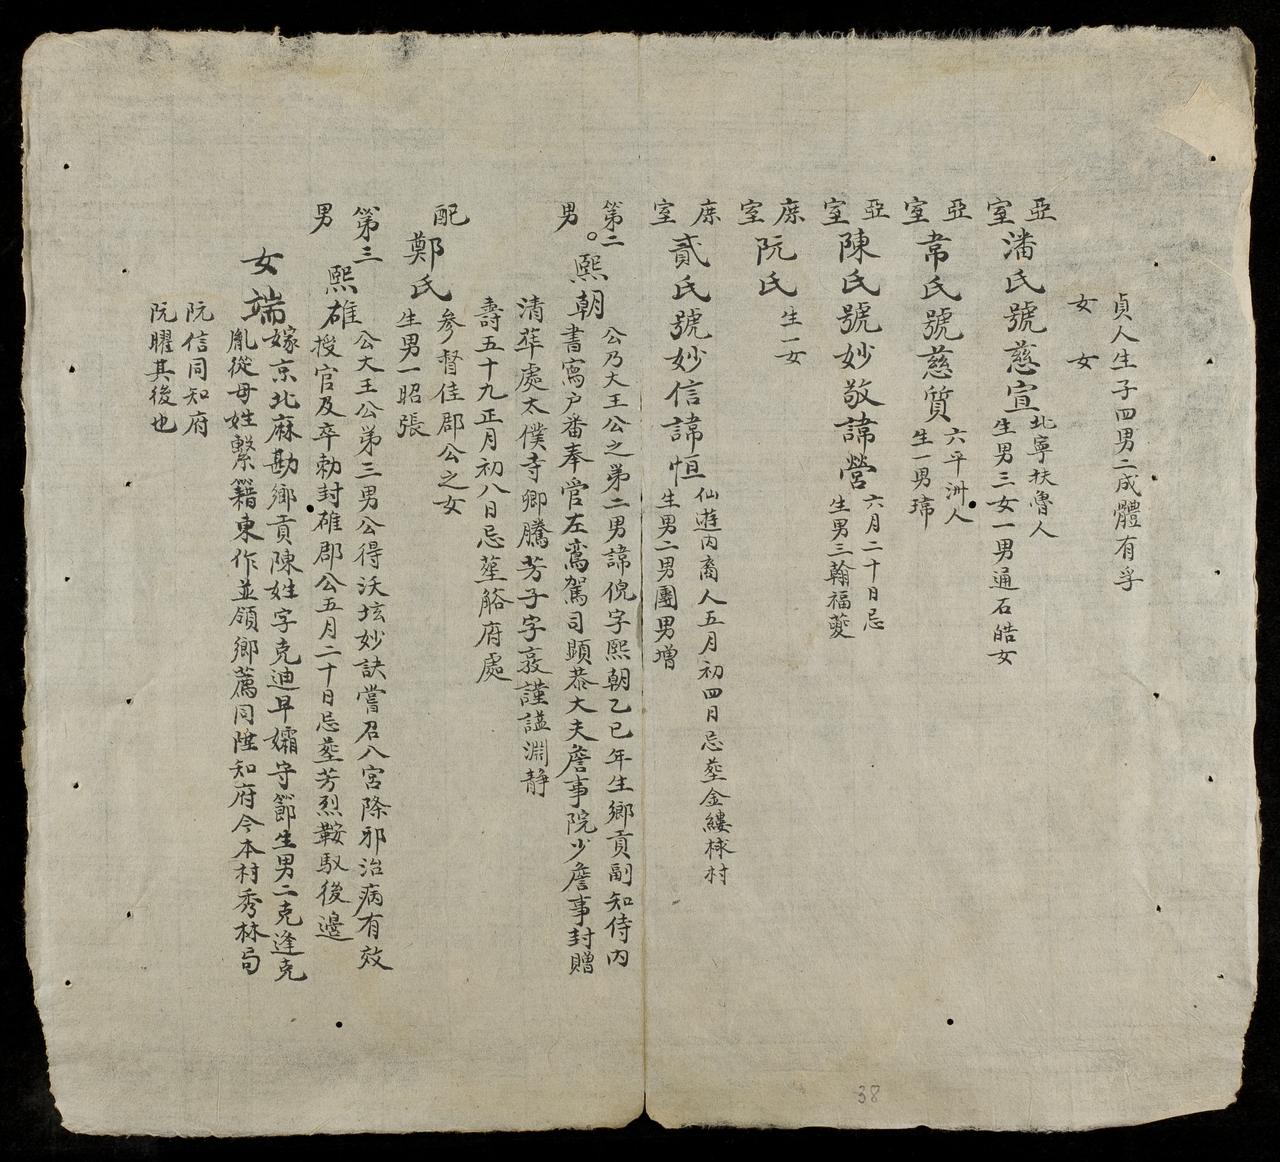 貞人生子四男二成體有孚
女 女
亞室潘氏號慈宣 北寧扶魯人
生男三女一男通石皓女
亞室韋氏號慈質 六平洲人
生一男㻶
亞室陳氏號妙敬諱營 六月二十日忌
生男三翰福夔
庶室阮氏 生一女
庶室貳氏號妙信諱恒 仙遊內裔人五月初四日忌塟金縷棣村
生男二男團男增
第二男。熙朝 公乃大王公之第二男諱倪字熙朝乙巳年生鄉貢副知侍內
書寫户番奉管左鸞駕司顯恭大夫詹事院少詹事封贈
清華處太僕寺卿騰芳子字敦謹謚淵静
壽五十九正月初八日忌塟觡府處
配鄭氏 參督佳郡公之女
生男一昭張
第三男熙雄 公大王公弟三男公得沃垓妙訣嘗召入宮除邪治病有效
授官及卒勅封碓郡公五月二十日忌塟芳烈鞍馭後邊
女端 嫁京北麻勘鄉貢陳姓字克迪早孀守節生男二克逢克
胤從母姓繫籍東作並領鄉薦同陞知府今本村秀林局
阮信同知府
阮曜其後也
38